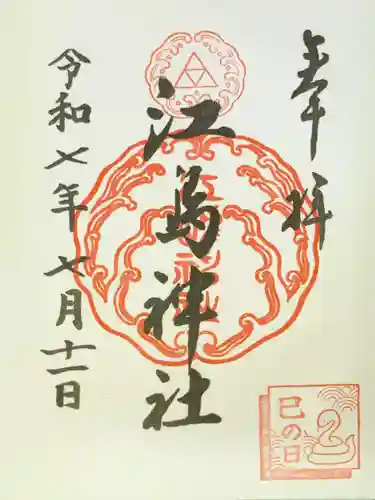 奉拝
江島神社
令和七年七月十一日
巳の日